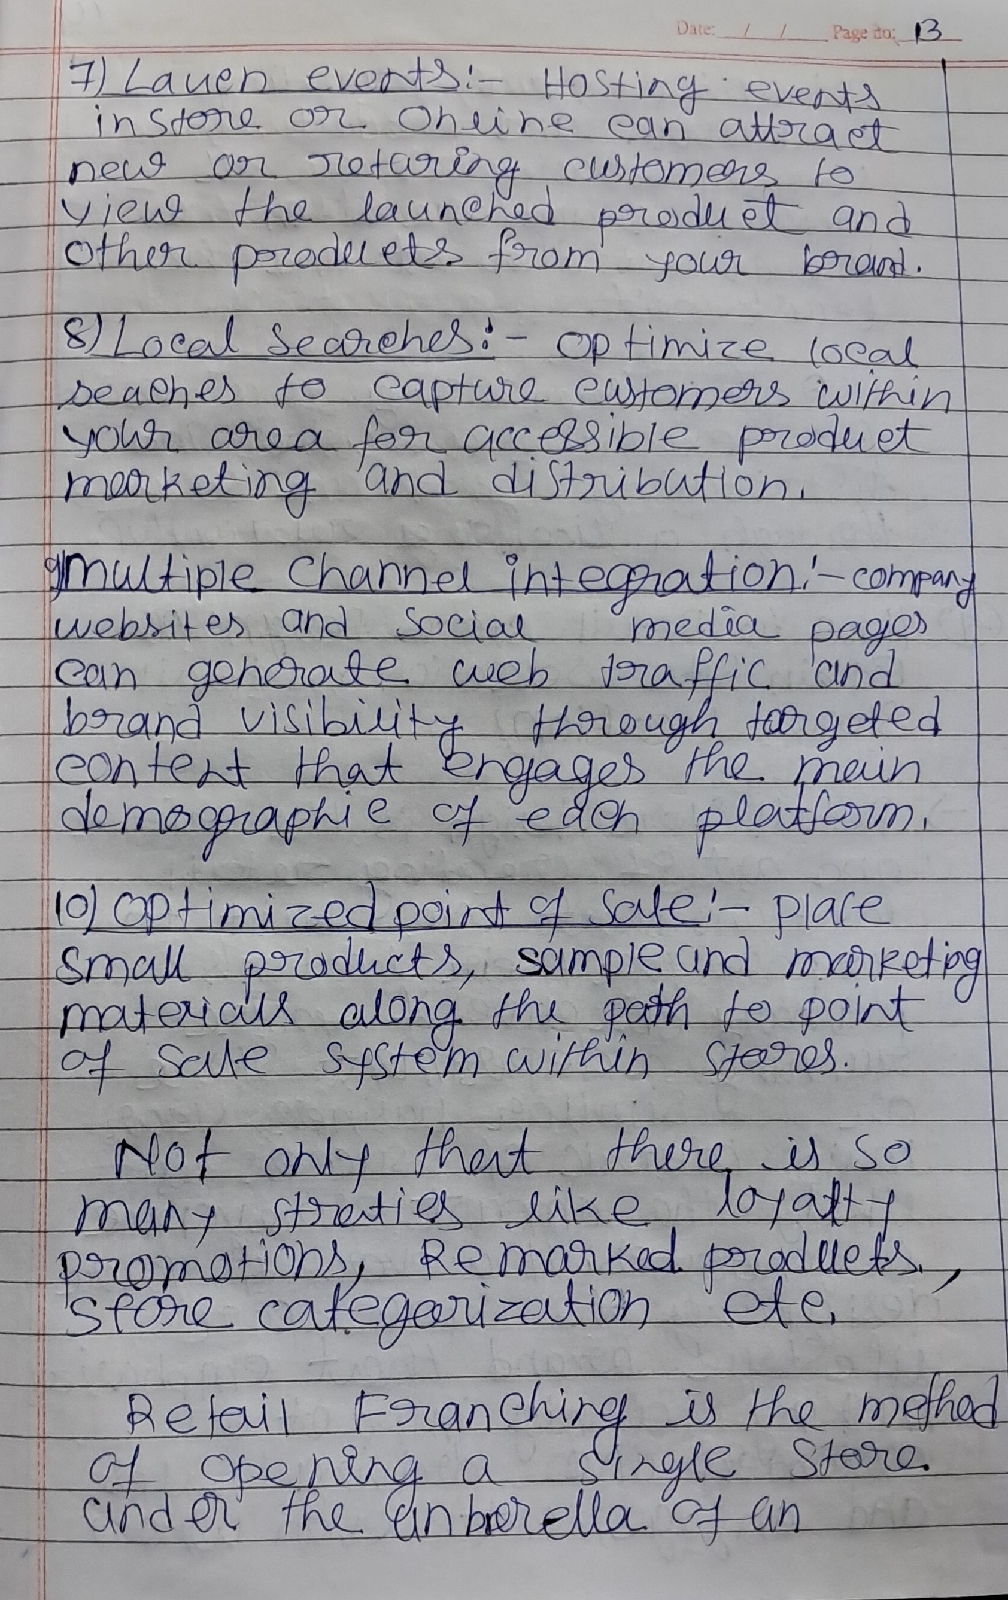 Date: / / Page no: 13
7) Lauen events:- Hosting events
instore or Online can attract
new or returing customers to
view the launched product and
other products from your brand.
8) Local Searches:- optimize local
seaches to capture customers within
your area for accessible product
marketing and distribution.
9) multiple Channel integration:- company
websites and social media pages
can generate web traffic and
brand visibility through targeted
content that engages the main
demographic of each platform.
10) Optimized point of Sale:- place
small products, sample and marketing
materials along the path to point
of sale system within stores.
Not only that there is so
many straties like loyalty
promotions, Remarked products,
store categorization etc.
Retail Franching is the method
of opening a single store
under the unbrella of an